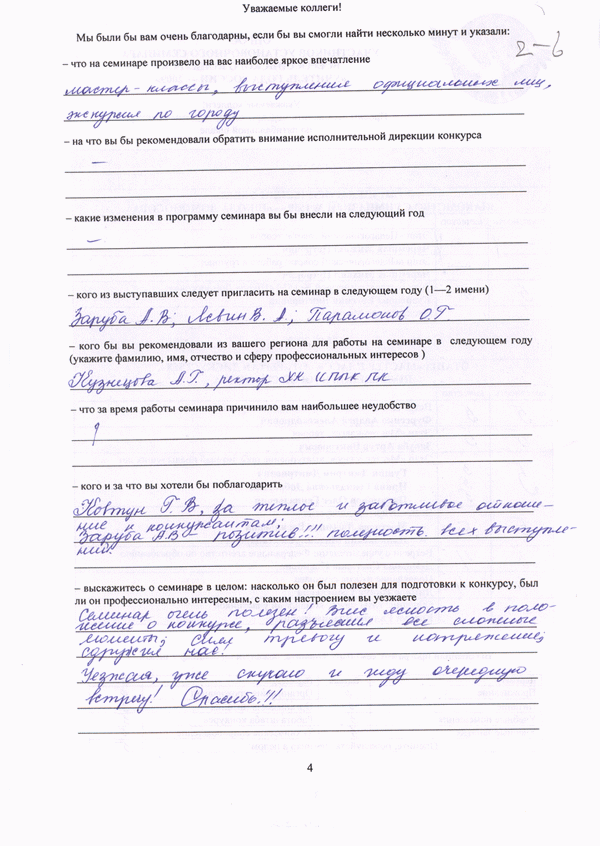 Уважаемые коллеги!
Мы были бы вам очень благодарны, если бы вы смогли найти несколько минут и указали:
2-6
– что на семинаре произвело на вас наиболее яркое впечатление
мастер-классы, выступления официальных лиц,
экскурсия по городу
– на что вы бы рекомендовали обратить внимание исполнительной дирекции конкурса
–
– какие изменения в программу семинара вы бы внесли на следующий год
–
– кого из выступавших следует пригласить на семинар в следующем году (1—2 имени)
Заруба А.В; Левин В.А; Парамонов О.Г.
– кого бы вы рекомендовали из вашего региона для работы на семинаре в следующем году
(укажите фамилию, имя, отчество и сферу профессиональных интересов )
Кузнецова А.Г., ректор ХК ИППК ПК
– что за время работы семинара причинило вам наибольшее неудобство
?
– кого и за что вы хотели бы поблагодарить
Ковтун Г.В, за теплое и заботливое отноше-
ние к конкурсантам;
Заруба А.В – позитив!!! полезность всех выступле-
ний!
– выскажитесь о семинаре в целом: насколько он был полезен для подготовки к конкурсу, был
ли он профессионально интересным, с каким настроением вы уезжаете
Семинар очень полезен! Внес ясность в поло-
жение о конкурсе, разъяснил все сложные
моменты; снял тревогу и напряжение;
сдружил нас!
Уезжая, уже скучаю и жду очередную
встречу! Спасибо!!!
4